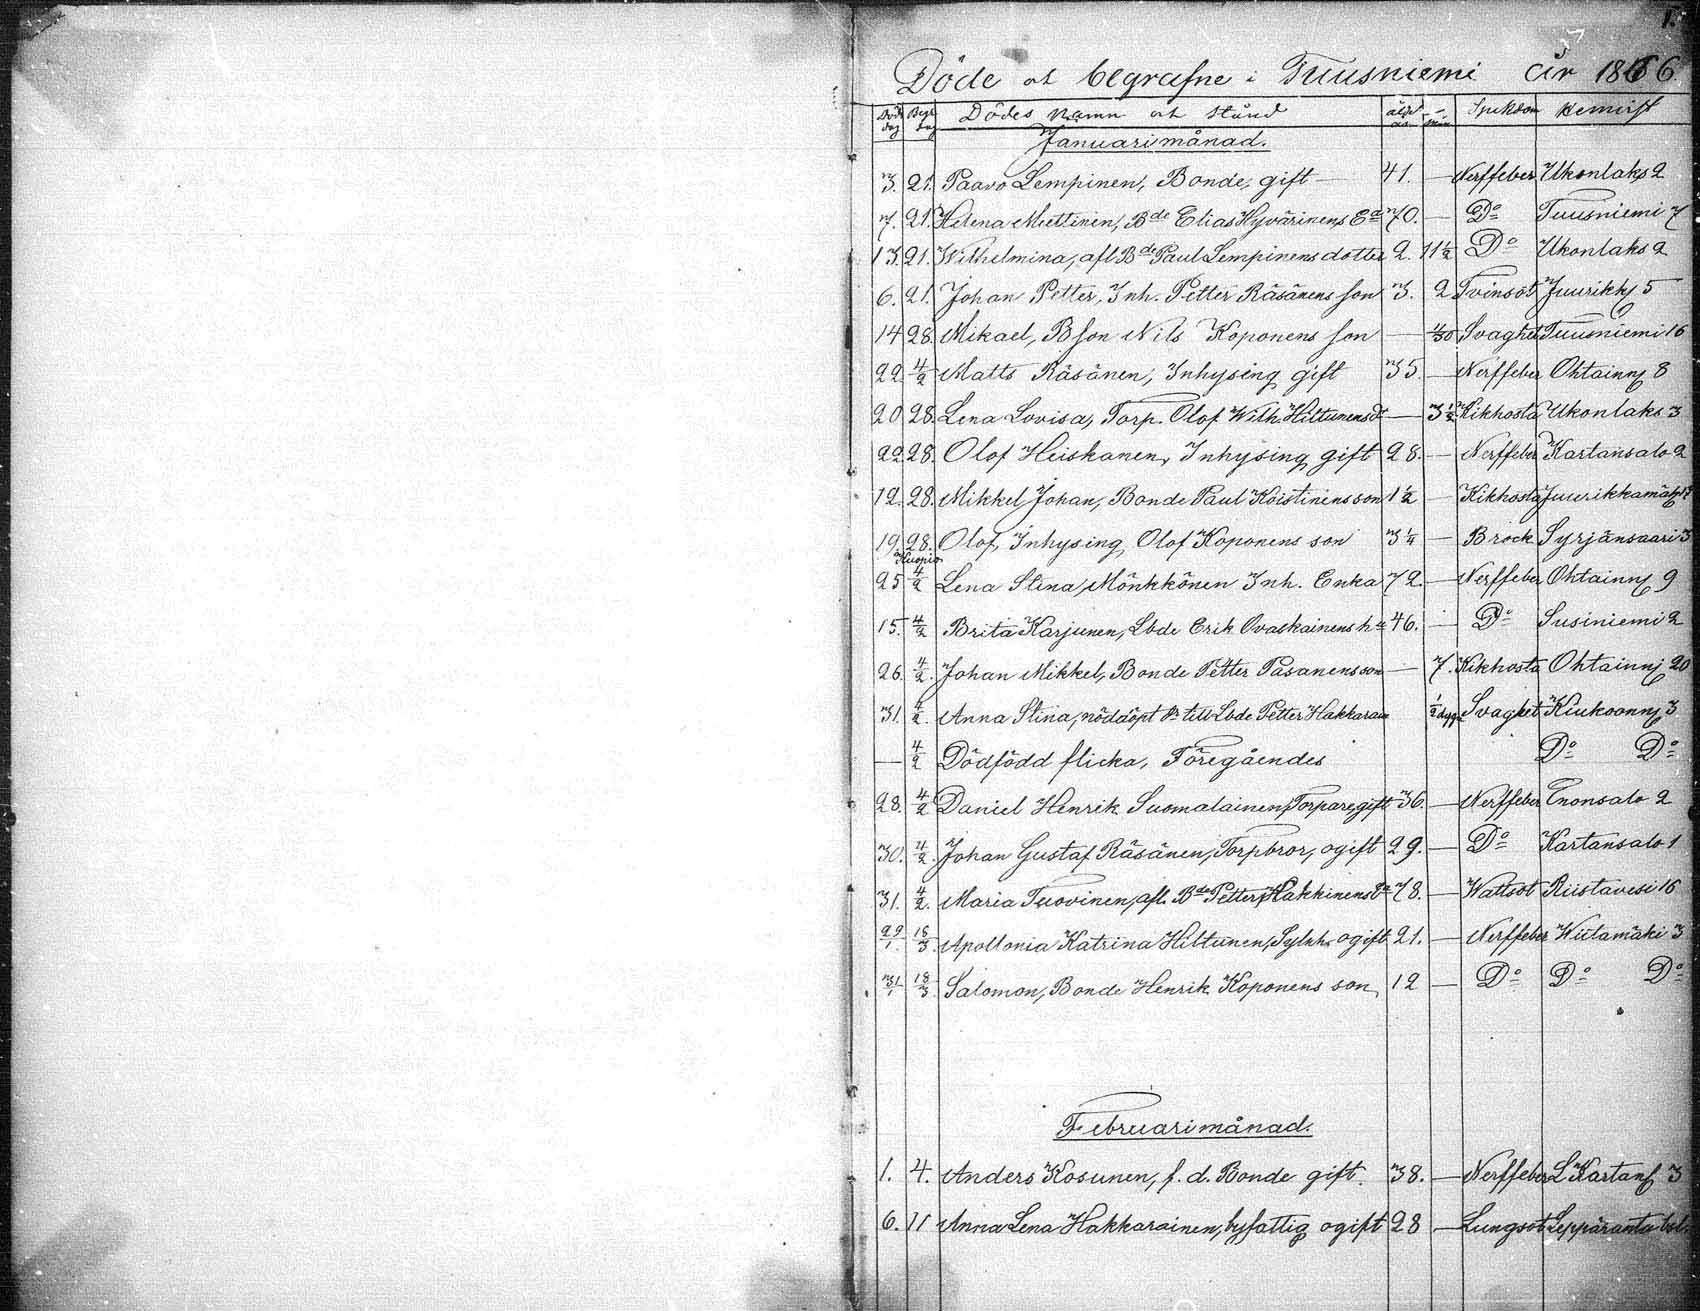 1.
Döde och begrafne i Tuusniemi År 1866
Död dag Begr. dag Dödes namn och stånd ålder år mån Sjukdom Hemvist
Januari månad.
3. 21. Paavo Lempinen, Bonde, gift — 41. — Nerffeber Ukonlaks 2
7. 21. Helena Miettinen, Bde Elias Hyvärinens Ea 70. — Do Tuusniemi 7
13. 21. Wilhelmina, afl. Bde Paul Lempinens dotter 2. 11½ Do Ukonlaks 2
6. 21. Johan Petter, Inh. Petter Räsänens son 3. 2 Tvinsot Juurikkj 5
14 28. Mikael, Bson Nils Koponens son — 4/30 Svaghet Tuusniemi 16
22. 4/2 Matts Räsänen, Inhysing gift 35. — Nerffeber Ohtainnj 8
20 28. Lena Lovisa, Torp. Olof Wilh. Hiltunens dr — 3½ Kikhosta Ukonlaks 3
22 28. Olof Heiskanen, Inhysing gift 28. — Nerffeber Kartansalo 2
12. 28. Mikkel Johan, Bonde Paul Koistinens son 1½ — Kikhosta Juurikkamäki 17
19 28. Olof, Inhysing Olof Koponens son 3¼ — Bråck Syrjänsaari 3
i Kuopio
25 4/2 Lena Stina Mönkkönen Inh. Enka 72. — Nerffeber Ohtainnj 9
15. 4/2 Brita Karjunen, Lbde Erik Ovaskainens h= 46. — Do Susiniemi 2
26. 4/2. Johan Mikkel, Bonde Petter Pasanens son — 7. Kikhosta Ohtainnj 20
31. 4/2. Anna Stina, nöddöpt dr till Lbde Petter Hakkarain ½ dygn Svaghet Kiukoonnj 3
— 4/2 Dödfödd flicka, Föregåendes Do Do
28. 4/2 Daniel Henrik Suomalainen, Torpare, gift 36. — Nerffeber Enonsalo 2
30. 4/2. Johan Gustaf Räsänen, Torpbror, ogift 29. — Do Kartansalo 1
31. 4/2. Maria Tuovinen, afl. Bde Petter Hakkinens Ea 78. — Wattsot Riistavesi 16
29/1. 18/3 Apollonia Katrina Hiltunen, Sytnh. ogift 21. — Nerffeber Wiitamäki 3
31/1 18/3 Salomon, Bonde Henrik Koponens son, 12 — Do Do Do
Februari månad.
1. 4. Anders Kosunen, f. d. Bonde gift. 38. — Nerffeber L Kartans 3
6. 11 Anna Lena Hakkarainen, byfattig ogift 28 — Lungsot Leppäranta